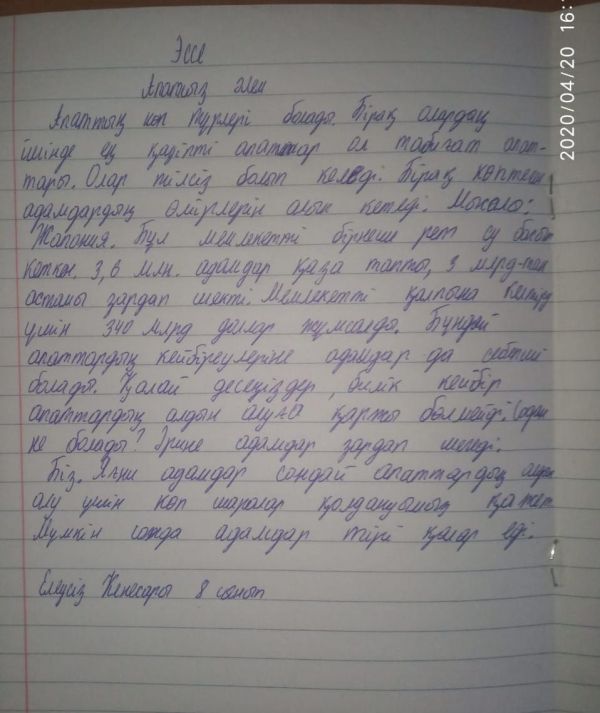 Эссе
Апатсыз әлем
Апаттың көп түрлері болады. Бірақ олардың
ішінде ең қауіпті апаттар ол табиғат апат-
тары. Олар тілсіз болып келеді. Бірақ көптеген
адамдардың өмірлерін алып кетеді. Мысалы:
Жапония. Бұл мемлекетті бірнеше рет су басып
кеткен. 3,6 млн. адамдар қаза тапты, 3 млрд-тан
астамы зардап шекті. Мемлекетті қалпына келтіру
үшін 340 млрд доллар жұмсалды. Бұндай
апаттардың кейбіреулеріне адамдар да себепші
болады. Қалай десеңіздер, билік кейбір
апаттардың алдын алуға қарты болмайды. Содан
не болады? Әрине адамдар зардап шегеді.
Біз. Яғни адамдар сондай апаттардың алдын
алу үшін көп шаралар қолдануымыз қажет
Мүмкін сонда адамдар тірі қалар еді.
Елеусіз Кенесары 8 сынып
2020/04/20 16: